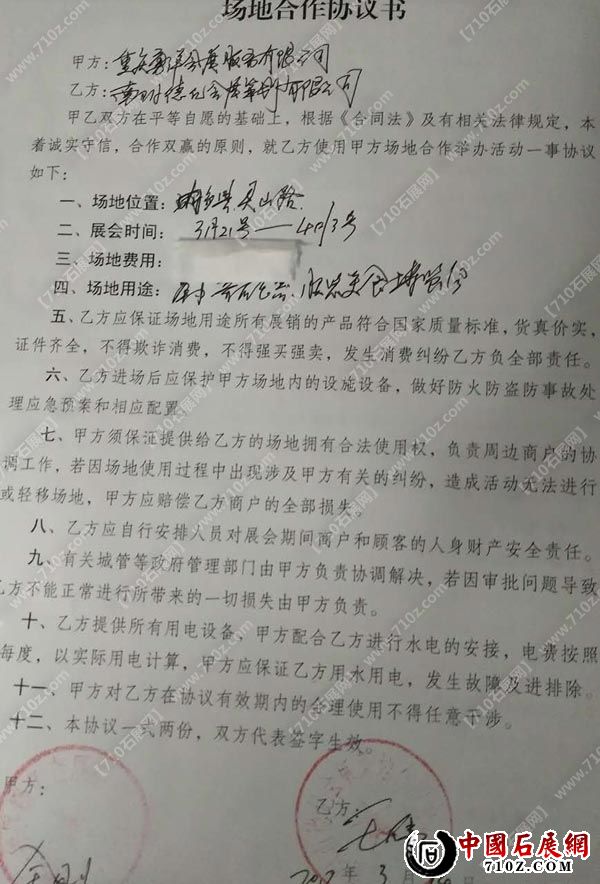 场地合作协议书
甲方：
乙方：
甲乙双方在平等自愿的基础上，根据《合同法》及有相关法律规定，本
着诚实守信，合作双赢的原则，就乙方使用甲方场地合作举办活动一事协议
如下：
一、场地位置：
二、展会时间：3月21号——4月3号
三、场地费用：
四、场地用途：
五、乙方应保证场地用途所有展销的产品符合国家质量标准，货真价实，
证件齐全，不得欺诈消费，不得强买强卖，发生消费纠纷乙方负全部责任。
六、乙方进场后应保护甲方场地内的设施设备，做好防火防盗防事故处
理应急预案和相应配置
七、甲方须保证提供给乙方的场地拥有合法使用权，负责周边商户的协
调工作，若因场地使用过程中出现涉及甲方有关的纠纷，造成活动无法进行
或轻移场地，甲方应赔偿乙方商户的全部损失。
八、乙方应自行安排人员对展会期间商户和顾客的人身财产安全责任。
九、有关城管等政府管理部门由甲方负责协调解决，若因审批问题导致
乙方不能正常进行所带来的一切损失由甲方负责。
十、乙方提供所有用电设备，甲方配合乙方进行水电的安接，电费按照
每度，以实际用电计算，甲方应保证乙方用水用电，发生故障及进排除。
十一、甲方对乙方在协议有效期内的合理使用不得任意干涉。
十二、本协议一式两份，双方代表签字生效。
甲方：
乙方：
年 3 月
中國石展網
710Z.COM
【710石展网】
www.710z.com